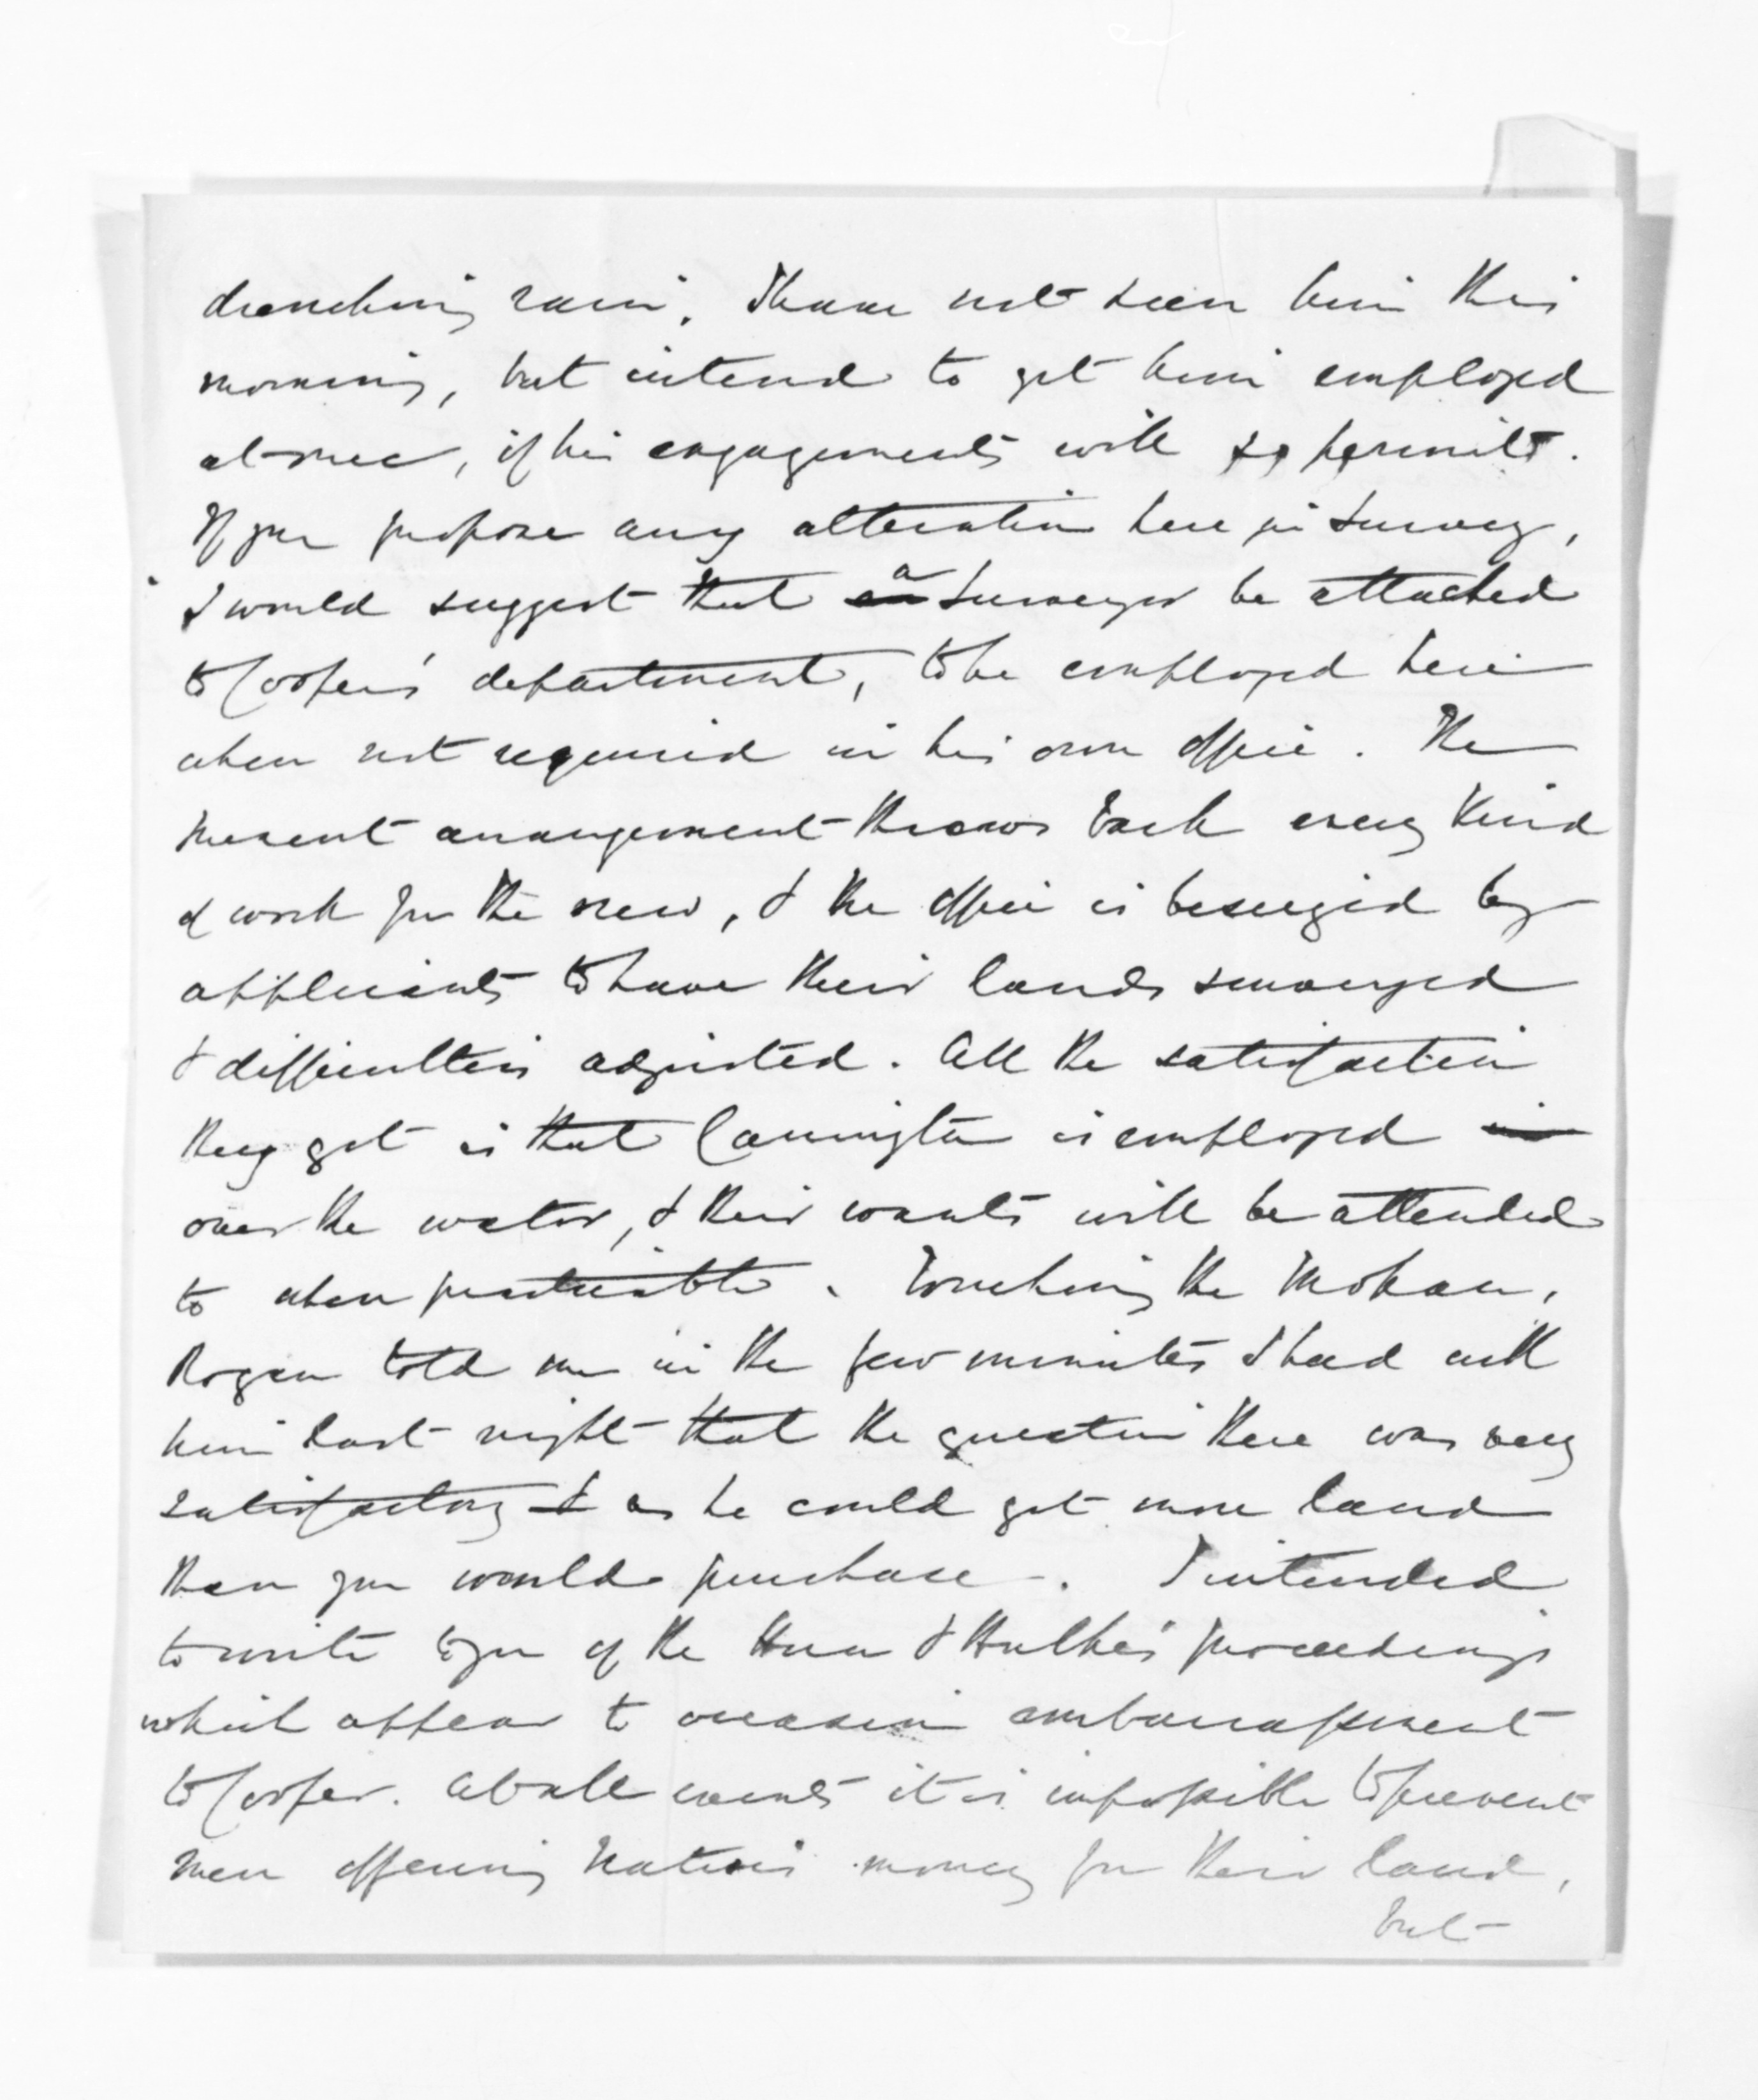 drenching rain. I have not seen him this
morning, but intend to get him employed
at once, if his engagements will so permit.
If you propose any alteration here in survey,
I would suggest that an a Surveyor be attached
to Cooper's department, to be employed here
when not required in his own office. The
present arrangement throws back every kind
of work for the new, & the office is beseiged by
applicants to have their lands surveyed
& difficulties adjusted. All the satisfaction
they get is that Cannington is employed in
over the water, & their wants will be attended
to when practicable. Touching the Mokau,
Rogan told me in the few minutes I had with
him last night that the question there was very
satisfactory & as he could get more land
than you would purchase. I intended
to write to you of the Hua & Hulke's proceedings
which appear to occasion embarrassment
to Cooper. At all events it is impossible to prevent
men offering Natives money for their land,
but